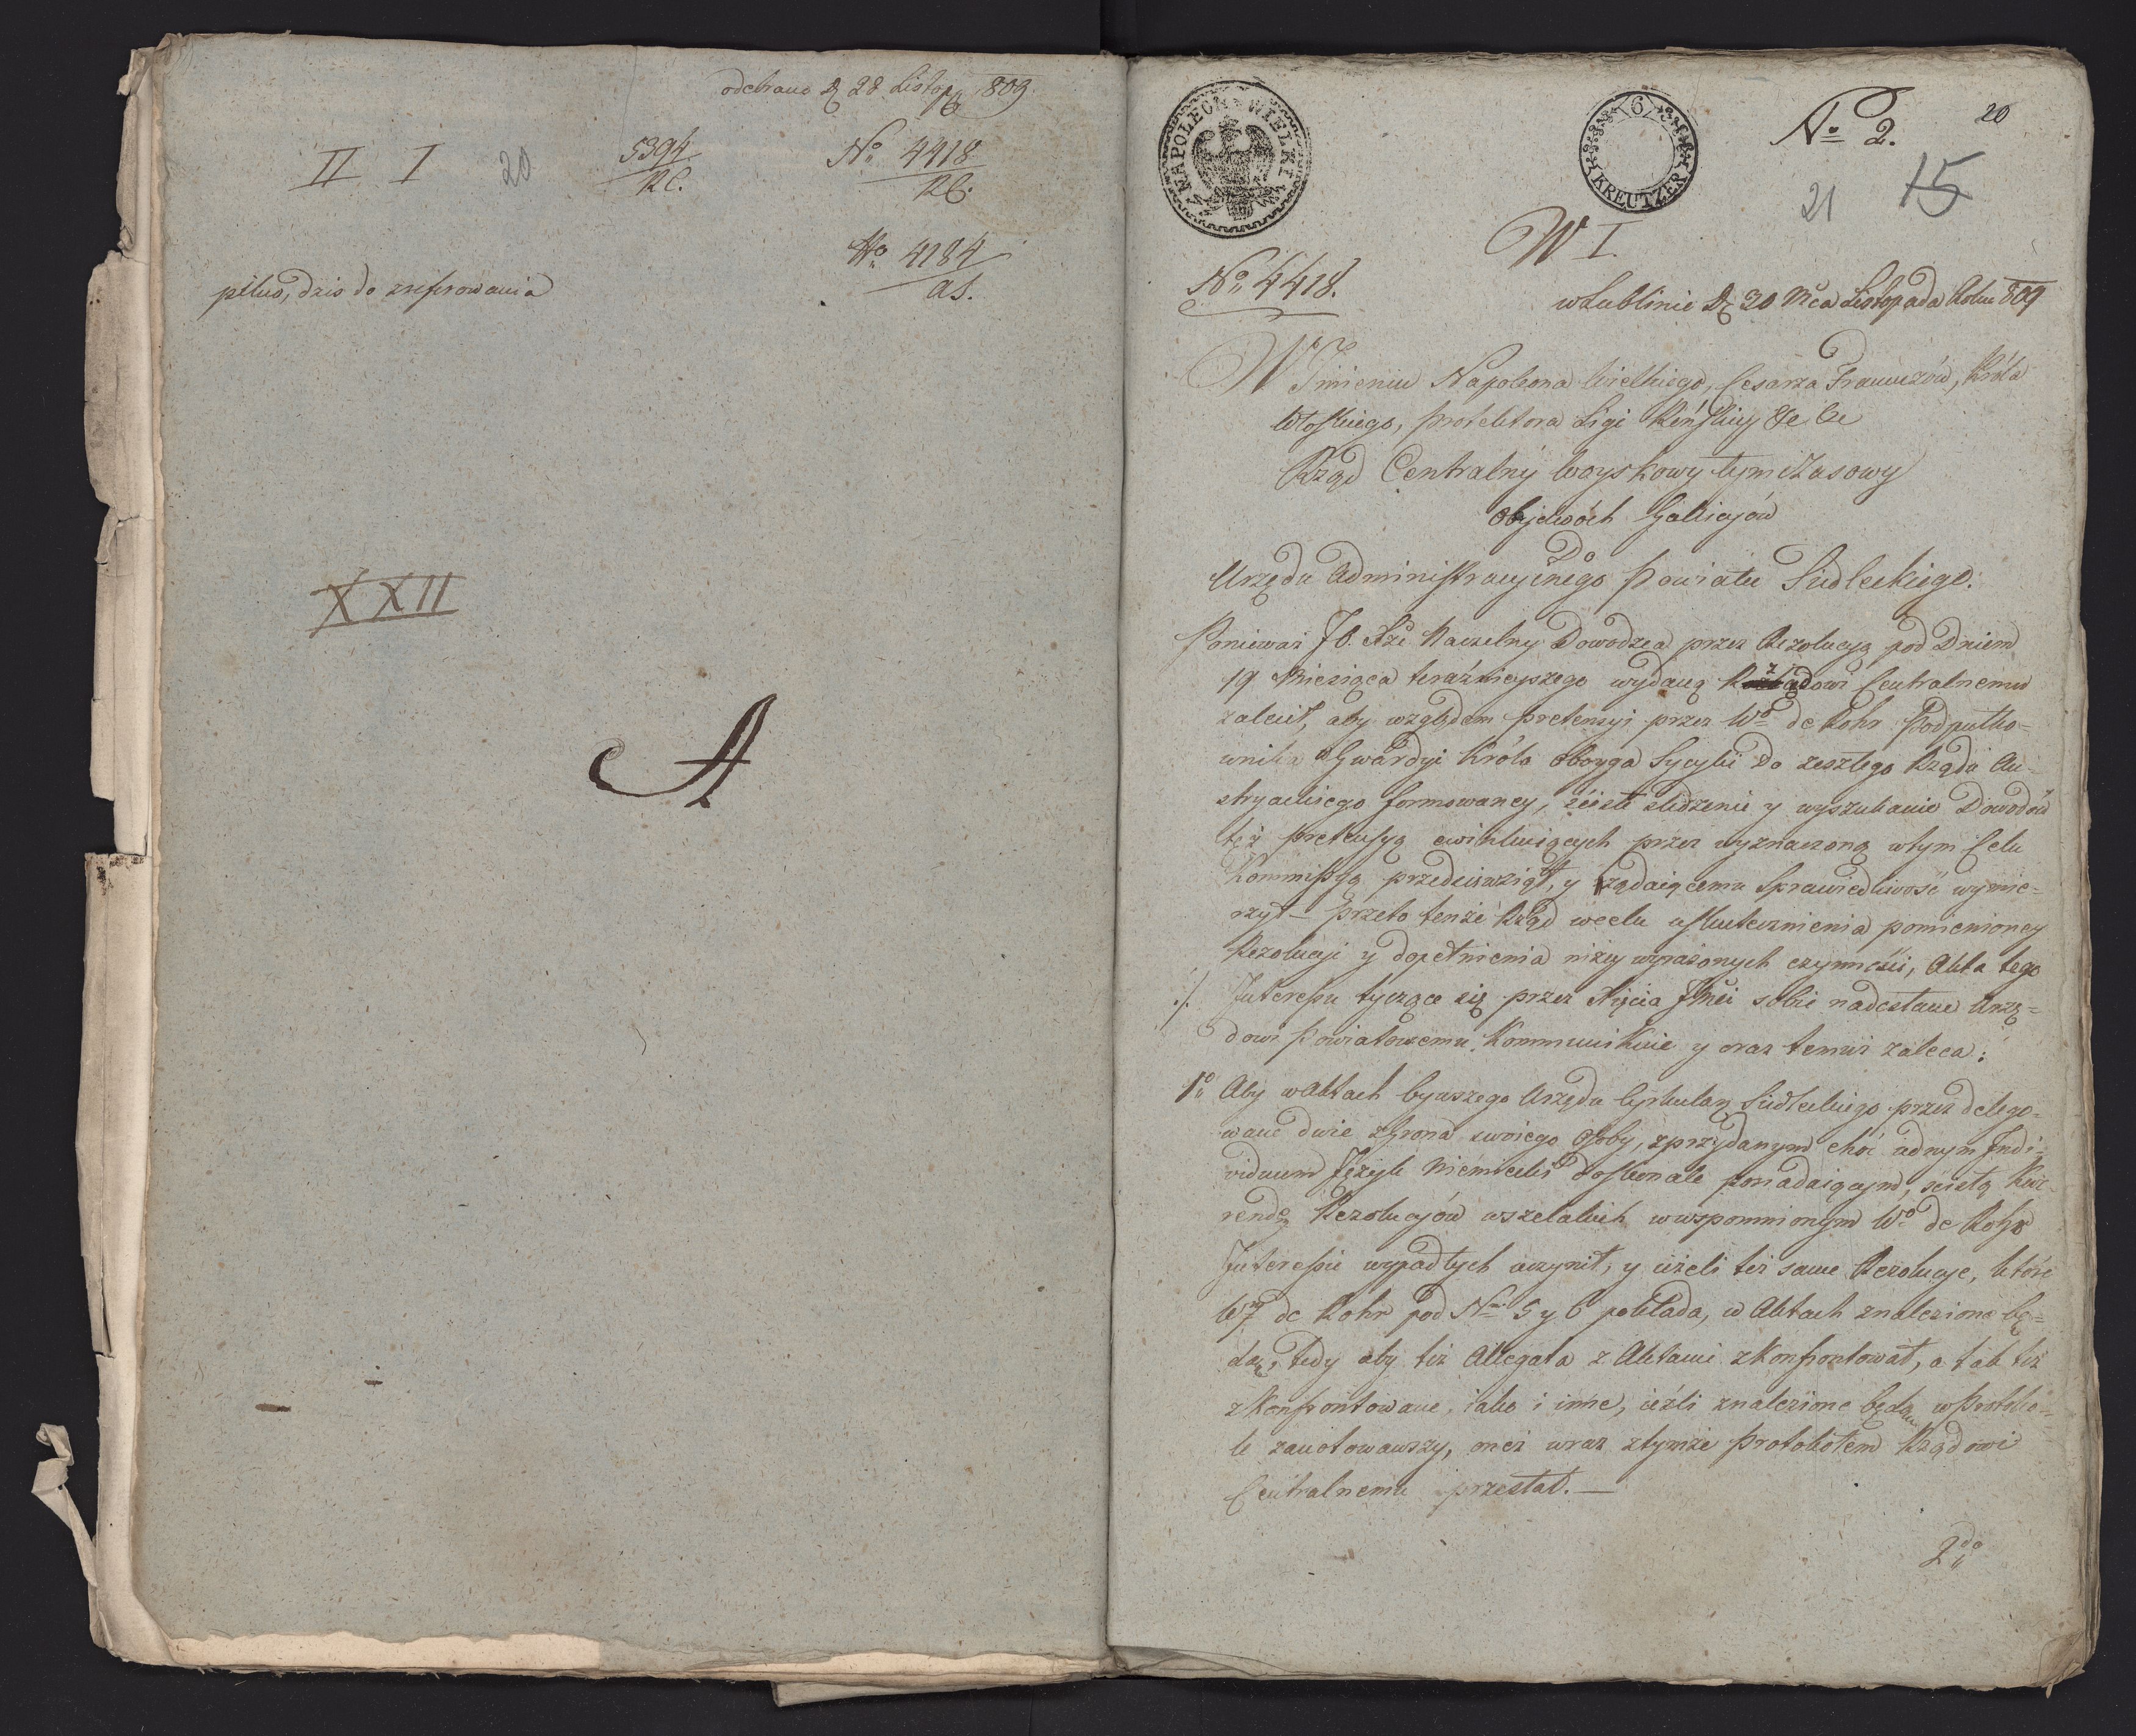 odebrano D 28 Listopa 809
II I 20 5394 No 4418
RC. RC.
No 4184
as.
pilno, dzis do zreferowania
XXII
A
NAPOLEON WIELKI
6 KREUTZER
No 2. 20
21 15
W I.
No 4418.
w Lublinie D 20 Mca Listopada Roku 809
W Imieniu Napoleona Wielkiego, Cesarza Francuzów, Króla
Włoskiego, Protektora Ligi Reńskiey &c &c
Rząd Centralny Woyskowy tymczasowy
Obydwóch Galicyów
Do
Urzędu Administracyinego Powiatu Siedleckiego.
Ponieważ JO. Xże Naczelny Dowodzca przez Rezolucyą pod Dniem
19 Miesiąca teraźnieyszego wydaną Rządowi Centralnemu
zalecił, aby względem pretensyi przez Wo de Rohr Podpułko=
wnika Gwardyi Króla Oboyga Sycylii do zeszłego Rządu Au=
stryackiego formowaney, ścisłe śledzenie y wyszukanie Dowodów
tęż pretensyą ewinkuiących przez wyznaczoną w tym Celu
Kommissyą przedsięwziął, y żądaiącemu Sprawiedliwość wymie=
rzył – przeto tenże Rząd w celu uskutecznienia pomienioney
Rezolucyi y dopełnienia niżey wyrażonych czynności, Akta tego
./. Interessu tyczące się przez Xięcia Jmci sobie nadesłane Urzę=
dowi Powiatowemu Kommunikuie y oraz temuż zaleca:
1o Aby w Aktach bywszego Urzędu Cyrkularn Siedleckiego przez delego=
wane dwie z Grona swoiego Osoby, z przydanym choć iednym Indi=
viduum Język Niemiecki doskonale posiadaiącym, ścisłą Kwe=
rendę Rezolucyów wszelakich w wspomnionym Wo de Rohr
Interessie wypadłych uczynił, y ieżeli też same Rezolucye, które
Wy de Rohr pod Nrmi 5 y 6 pokłada, w Aktach znalezione bę=
dą, tedy aby też Allegata z Aktami zkonfrontował, a tak też
zkonfrontowane, iako i inne, ieżli znalezione będą w Protoko=
le zanotowawszy, oneż wraz z tymże Protokołem Rządowi
Centralnemu przesłał. —
2do